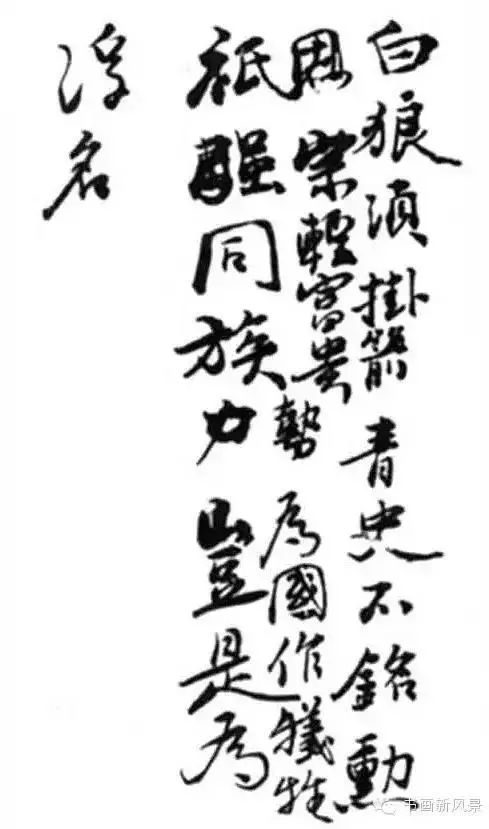 白狼須掛箭青史不銘勳
輕富貴勢為國作犧牲
祇同族力豈是為
浮名
书画新风景